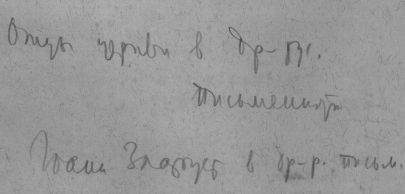 Отцы церкви в др-рус.
письменности
Иоанн Златоуст в др-р. письм.